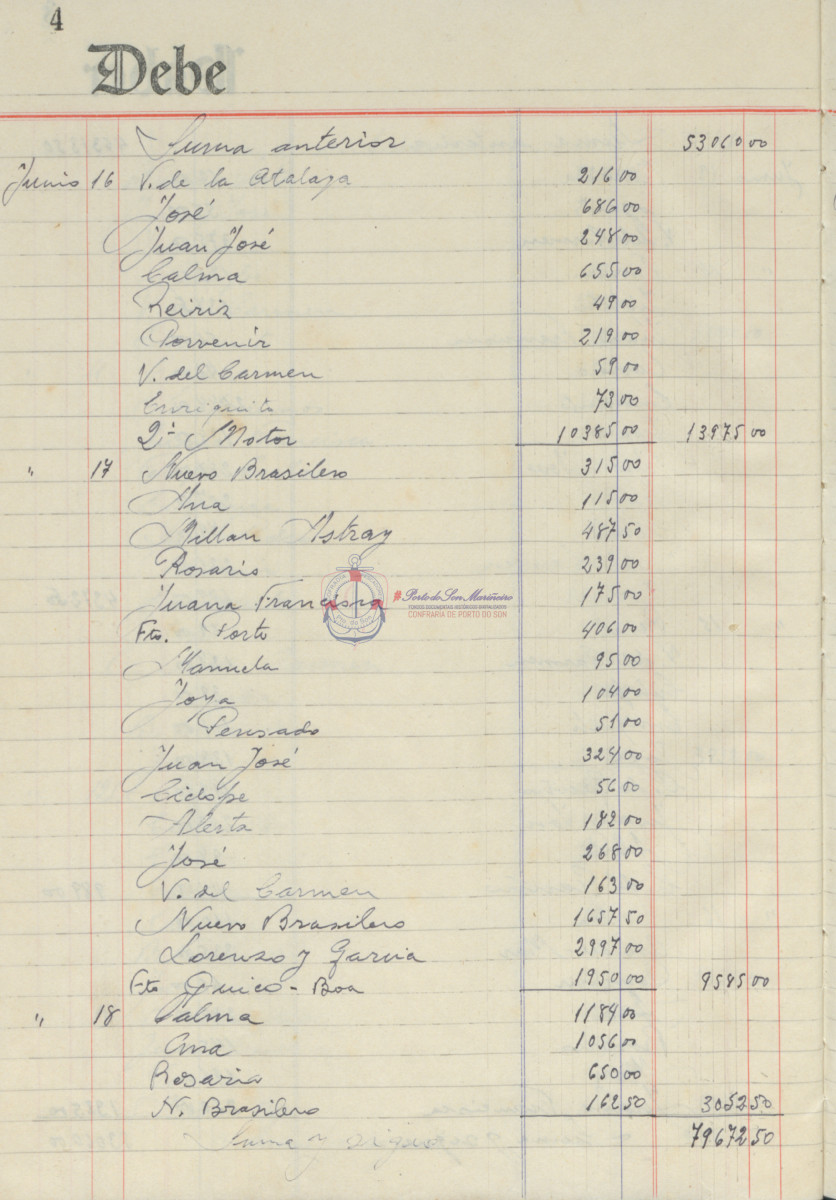 4
Debe
Suma anterior 53060 00
Junio 16 V. de la Atalaya 216 00
José 686 00
Juan José 248 00
Calma 655 00
Reiriz 49 00
Porvenir 219 00
V. del Carmen 59 00
Enriquito 73 00
2º Motor 10385 00 13975 00
" 17 Nuevo Brasilero 315 00
Ana 115 00
Millan Astray 487 50
Rosario 239 00
Juana Francisca 175 00
Fto. Porto 406 00
Manuela 95 00
Joya 104 00
Pensado 51 00
Juan José 324 00
Ciclope 56 00
Alerta 182 00
José 268 00
V. del Carmen 163 00
Nuevo Brasilero 1657 50
Lorenzo y Garcia 2997 00
Fto Quico - Boa 1950 00 9585 00
" 18 Calma 1184 00
Ana 1056 00
Rosaria 650 00
N. Brasilero 162 50 3052 50
Suma y sigue 79672 50
#Porto do Son Mariñeiro
CONFRARIA DE PORTO DO SON